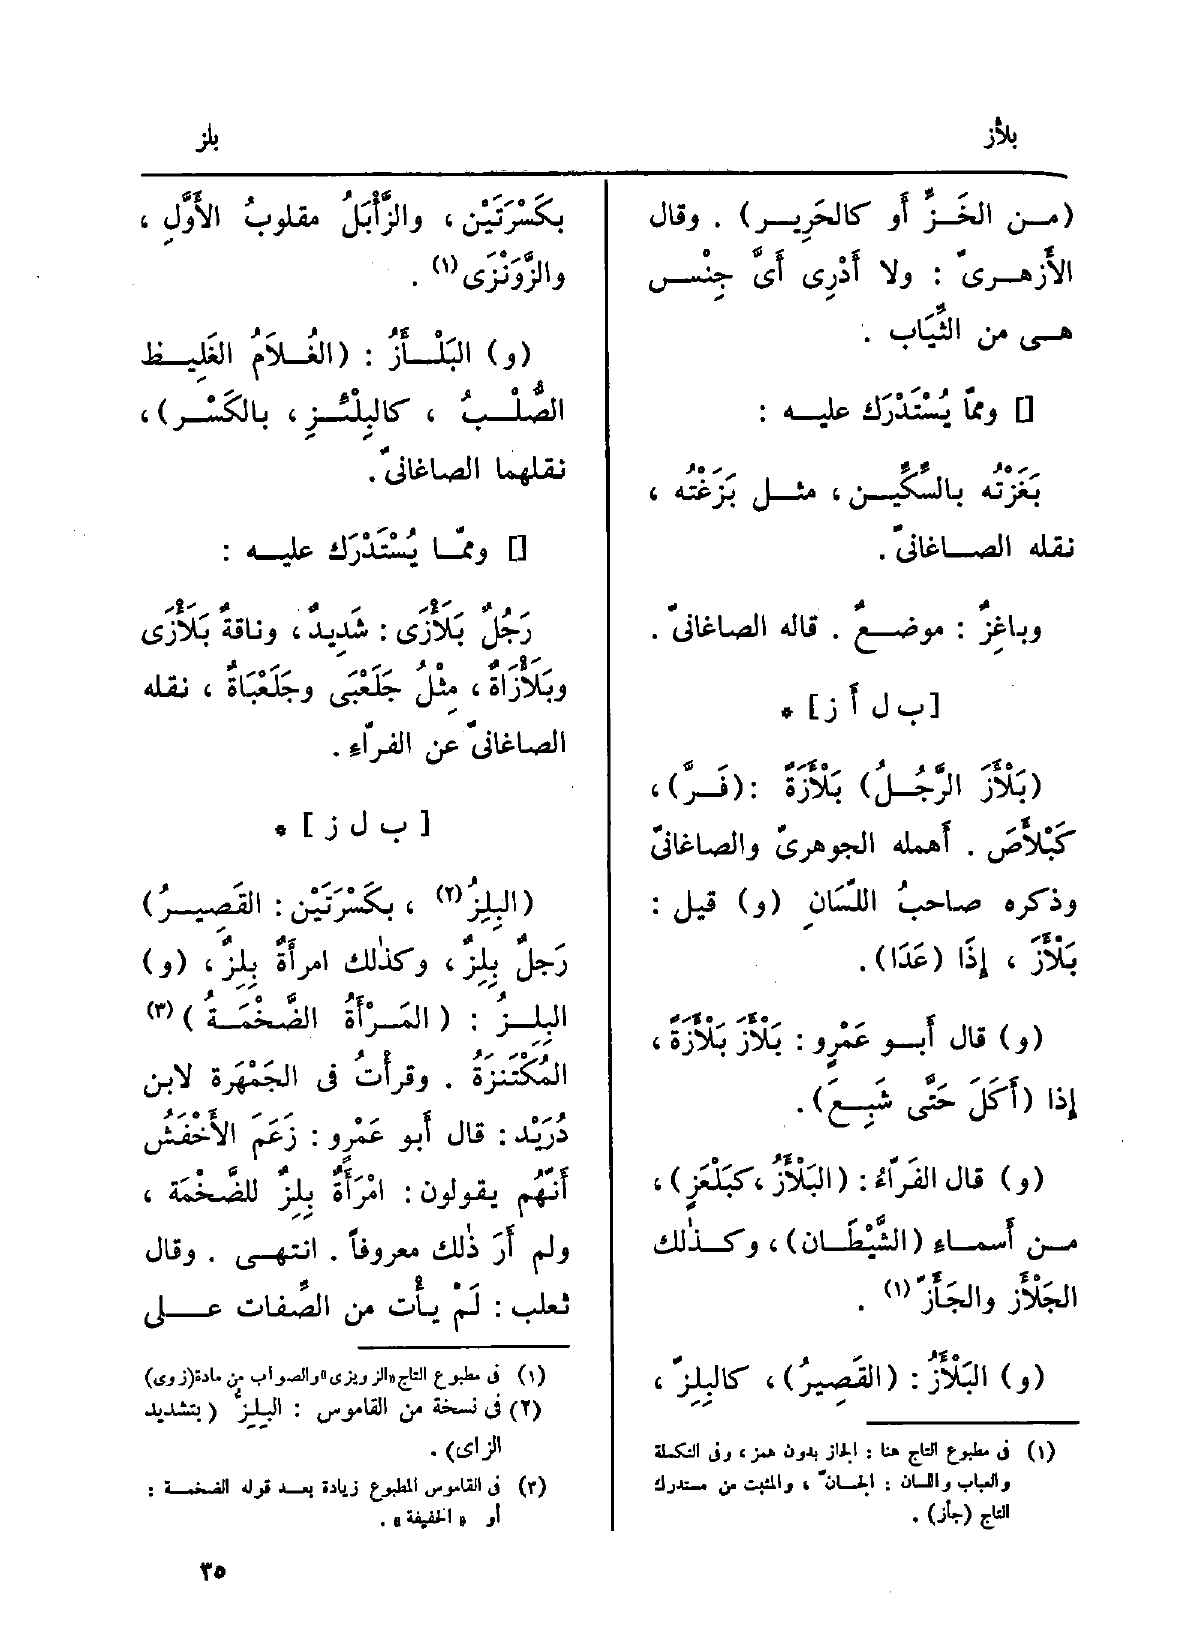 بلأز
بلز
(من الخَزِّ أَو كالحَرِير) . وقال
الأَزهرىّ : ولا أَدْرِى أَىَّ جِنْس
هى من الثِّيَاب .
[] وممّا يُسْتَدْرَك عليه :
بَغَزْتُه بالسِّكِّين ، مثل بَزَغْتُه ،
نقله الصاغانىّ .
وباغِزٌ : موضعٌ . قاله الصاغانىّ .
[ب ل أ ز] *
(بَلْأَزَ الرَّجُلُ) بَلْأَزَةً : (فَرَّ) ،
كَبَلْأَصَ . أَهمله الجوهرىّ والصاغانىّ
وذكره صاحبُ اللّسَانِ (و) قيل :
بَلْأَزَ ، إِذَا (عَدَا) .
(و) قال أَبو عَمْرٍو : بَلْأَزَ بَلْأَزَةً ،
إِذا (أَكَلَ حَتَّى شَبِعَ) .
(و) قال الفَرّاءُ : (البَلْأَزُ ، كبَلْعَزٍ) ،
من أَسماءِ (الشَّيْطَان) ، وكذٰلك
الجَلْأَز والجَأَزّ (١) .
(و) البَلْأَزُ : (القَصِيرُ) ، كالبِلِزّ ،
(١) فى مطبوع التاج هنا : الجاز بدون همز ، وفى التكملة
والعباب واللسان : الجَانّ ، والمثبت من مستدرك
التاج (جأز) .
بكَسْرَتَيْنِ ، والزَّأْبَلُ مقلوبُ الأَوَّلِ ،
والزَّوَنْزَى (١) .
(و) البَلْأَزُ : (الغُلَامُ الغَلِيظ
الصُّلْبُ ، كالبِلْئِزِ ، بالكَسْر) ،
نقلهما الصاغانىّ .
[] وممّا يُسْتَدْرَك عليه :
رَجُلٌ بَلَأْزَى : شَدِيدٌ ، وناقةٌ بَلَأْزَى
وبَلَأْزَاةٌ ، مِثْلُ جَلَعْبَى وجَلَعْبَاةٌ ، نقله
الصاغانىّ عن الفرّاءِ .
[ ب ل ز ] *
(البِلِزُ (٢) ، بكَسْرَتَيْنِ : القَصِيرُ)
رَجلٌ بِلِزٌ ، وكذٰلك امرأَةٌ بِلِزٌ ، (و)
البِلِزُ : (المَرْأَةُ الضَّخْمَةُ) (٣)
المُكْتَنِزَةُ . وقرأْتُ فى الجَمْهَرة لابن
دُرَيْد : قال أَبو عَمْرٍو : زَعَمَ الأَخْفَشُ
أَنَّهُم يقولون : امْرَأَةٌ بِلِزٌ للضَّخْمَة ،
ولم أَرَ ذٰلك معروفاً . انتهى . وقال
ثعلب : لَمْ يأْت من الصِّفات على
(١) فى مطبوع التاج «الزويزى» والصواب من مادة (زوى)
(٢) فى نسخة من القاموس : البِلِزُّ (بتشديد
الزاى) .
(٣) فى القاموس المطبوع زيادة بعد قوله الضخمة :
أو « الخفيفة » .
٣٥